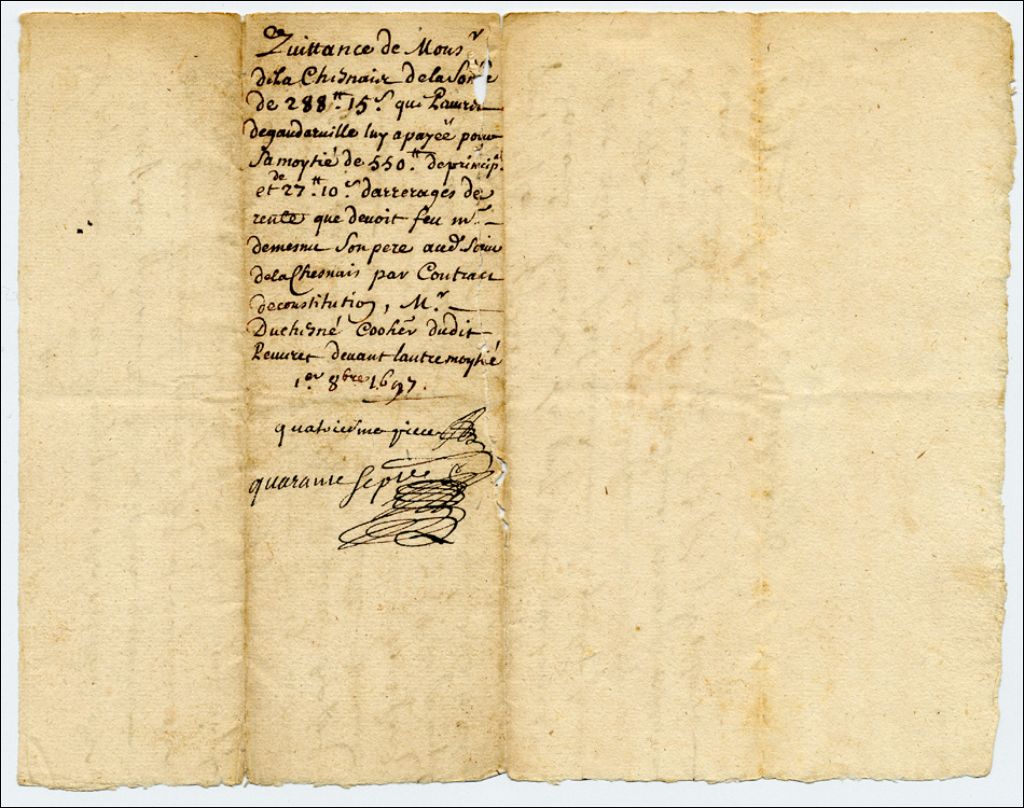 Quittance de Mons.r
de la Chesnaie de la Som̃e
de 288.tt 15.s que Peuvret
degaudarville luy a payeé pour
Sa moytié de 550.tt deprincip.l
et de 27.tt 10.s darrerages de
rente que devoit feu m.r
demesnu Son pere aud. Sieur
delaChesnais par Contract
deconstitution, M.r
Duchesné Cooher dudit
Peuvret devant lautre moytié
1.er 8bre 1697.
quatoiesme piece
quarante Septe